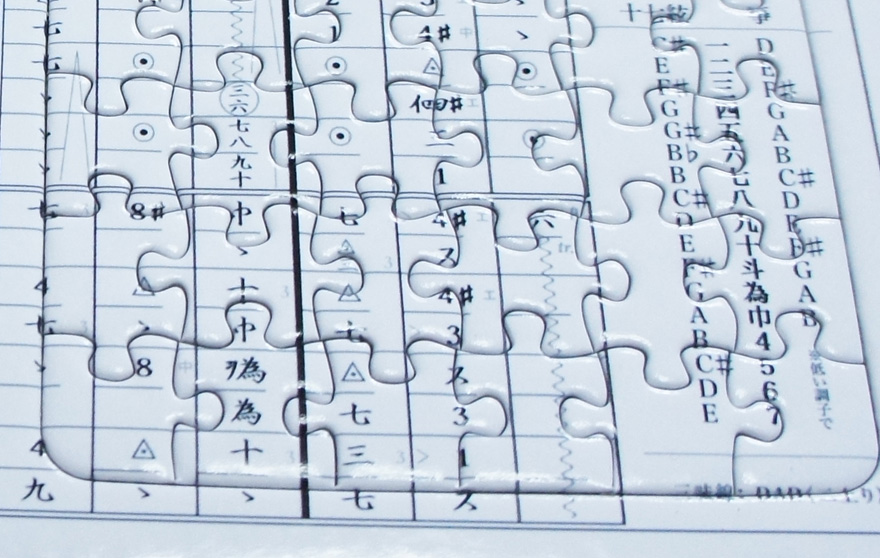 ※低い調子で
D E F# G A B C# D E F# G A B
一二三四五六七八九十斗為巾4567
十七絃
E F# G G# B♭ B C# D E F# G A B C# D E
三味線：DAD(二上り)
、 ⊙ ⊙ 六 tr.
4# △ 二 1 4# ス 4# 3 ス 3 1 ス
1 ⊙ ⊙ 七 △ 三 △ 七 △ 七 三 七
三六七八九十 巾 、 十 巾 ヲ為 為 十 、
⊙ ⊙ 8# △ 、 8 △ 、
七 七 、 、 、 七 4 七 、 4 九